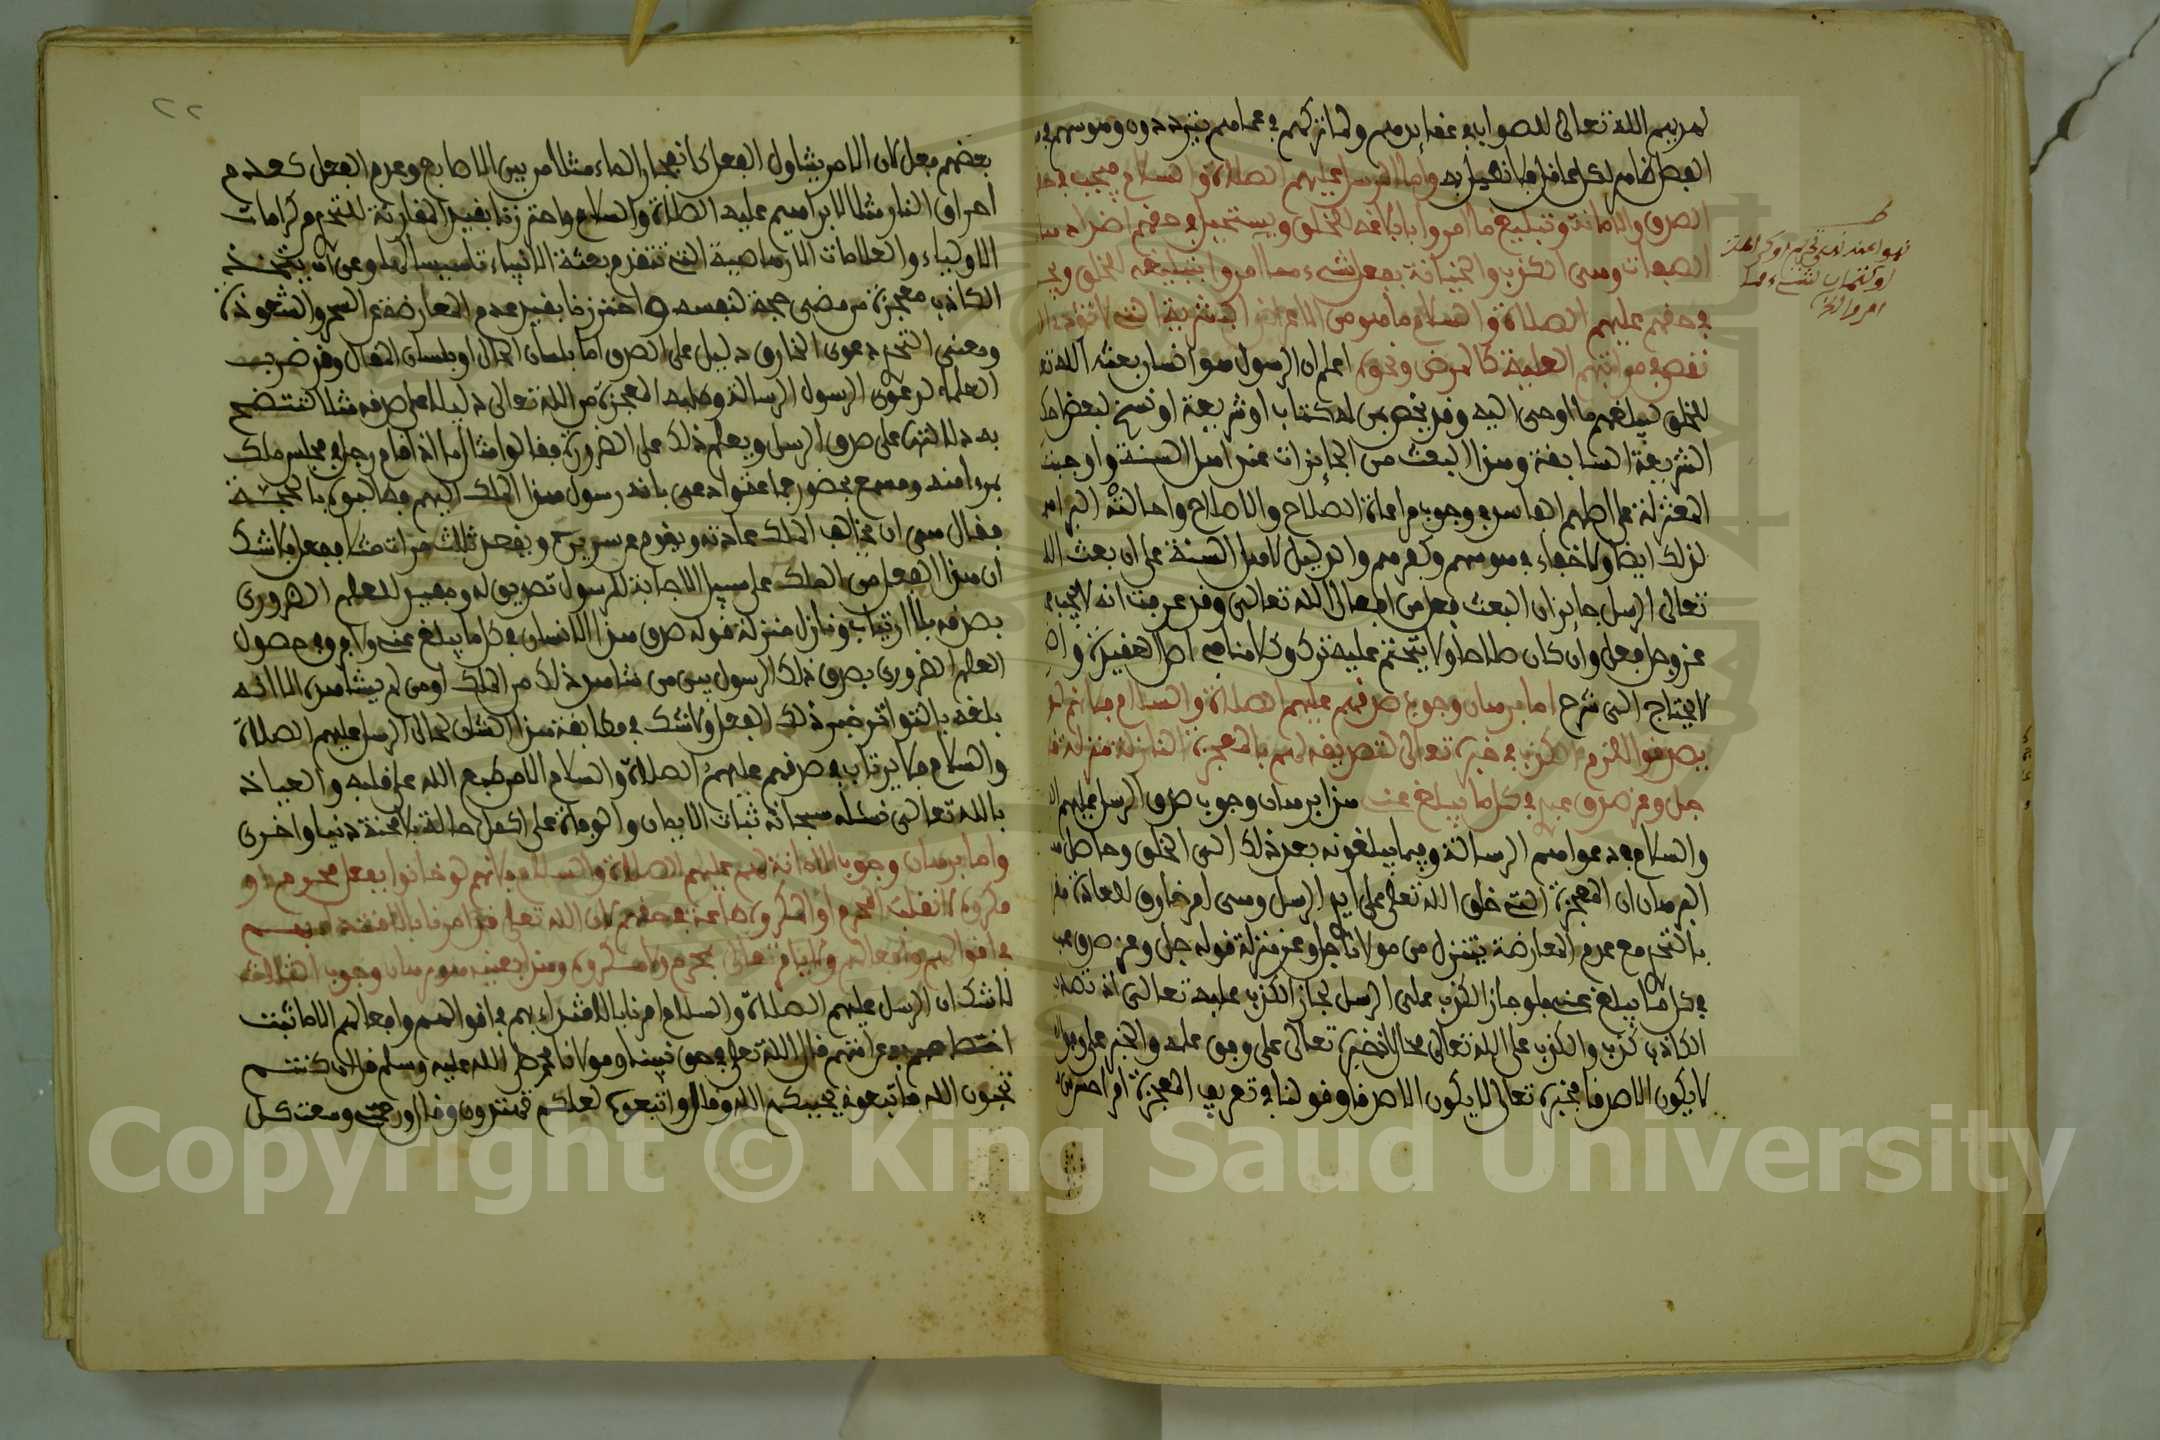 لهديهم الله تعالى للصواب في عقايدهم ولما تركهم في عماهم يترددون وهو سهم في
العقل ظاهر لكل عاقل بانفراده واما الرسل عليهم الصلاة والسلام فيجب في حقـ
الصدق والامانة وتبليغ ما امروا بابلاغه للخلق ويستحيل في حقهم اضداد هذه
الصفات وهي الكذب والخيانة بفعل شيء مما امروا بتبليغه للخلق ويجـ
في حقهم عليهم الصلاة والسلام ما هو من الاعراض البشرية التي لا تؤدي الـ
نقص في مراتبهم العلية كالمرض ونحوه اعلم ان الرسول هو انسان بعثه الله تعـ
للخلق ليبلغهم ما اوحي اليه وقد يخص بمن له كتاب او شريعة او نسخ لبعض احكـ
الشريعة السابقة وهذا البعث من الجايزات عند اهل السنة واوجبت
المعتزلة على اصلهم الفاسد في وجوب مراعاة الصلاح والاصلاح واحالته البراهمـ
لذلك ايضا ولا خفاء في هوسهم وكفرهم والدليل لاهل السنة على ان بعث الله
تعالى الرسل جايز ان البعث فعل من افعال الله تعالى وقد عرفت انه لا يجب عليـ
عز وجل فعل وان كان صلاحا ولا يتحتم عليه ترك وكلامنا في اصل العقيدة واضح
لا يحتاج الى شرح اما برهان وجوب صدقهم عليهم الصلاة والسلام فلانهم لو
لم يصدقوا للزم الكذب في خبره تعالى لتصديقه لهم بالمعجزة النازلة منزلة قـ
جل وعز صدق عبدي في كل ما يبلغ عني هذا برهان وجوب صدق الرسل عليهم الـ
والسلام في دعواهم الرسالة وفيما يبلغونه بعد ذلك الى الخلق وحاصل هذا
البرهان ان المعجزة التي خلق الله تعالى على ايدي الرسل وهي امر خارق للعادة مقـ
بالتحدي مع عدم المعارضة يتنزل من مولانا جل وعز منزلة قوله جل وعز صدق عبدي
في كل ما يبلغ عني فلو جاز الكذب على الرسل لجاز الكذب عليه تعالى اذ تصديق
الكاذب كذب والكذب على الله تعالى محال اذ خبره تعالى على وفق علمه والخبر على وفق العلم
لا يكون الا صدقا فخبره تعالى لا يكون الا صدقا وقولنا في تعريف المعجزة امر احسن من
نهوا عنه نهي تحريم او كراهة
او كتمان لشيء مما
امروا الخ
٢٢
بعضهم فعل لان الامر يتناول الفعل كانفجار الماء مثلا من بين الاصابع وعدم الفعل كعدم
احراق النار مثلا لابراهيم عليه الصلاة والسلام واحترزنا بقيد المقارنة للتحدي من كرامات
الاولياء والعلامات الارهاصية التي تتقدم بعثة الانبياء تاسيسا لها وعن ان يتخذ
الكاذب معجزة من مضى حجة لنفسه واحترزنا بقيد عدم المعارضة عن السحر والشعوذة
ومعنى التحدي دعوى الخارق دليل على الصدق اما بلسان الحال او بلسان المقال وقد ضرب
العلماء لدعوى الرسول الرسالة وطلبه المعجزة من الله تعالى دليلا على صدقه مثلا لتتضح
به دلالتها على صدق الرسل ويعلم ذلك على الضرورة فقالوا مثال ما اذا قام رجل في مجلس ملك
بمراى منه ومسمع بحضور جماعة وادعى بانه رسول هذا الملك اليهم فطالبوه بالحجة
فقال هي ان يخالف الملك عادته ويقوم عن سريره ويقعد ثلاث مرات مثلا ففعل فلا شك
ان هذا الفعل من الملك على سبيل الاجابة للرسول تصديق له ومفيد للعلم الضروري
بصدقه بلا ارتياب ونازل منزلة قوله صدق هذا الانسان في كل ما يبلغ عني ولا فرق في حصول
العلم الضروري بصدق ذلك الرسول بين من شاهد ذلك من الملك او من لم يشاهده الا انه
بلغه بالتواتر خبر ذلك الفعل ولا شك في مطابقة هذا المثال لحال الرسل عليهم الصلاة
والسلام فلا يرتاب في صدقهم عليهم الصلاة والسلام الا من طبع الله على قلبه والعياذ
بالله تعالى نسئله سبحانه ثبات الايمان والوفاة على اكمل حالة بلا محنة دنيا واخرى
واما برهان وجوب الامانة لهم عليهم الصلاة والسلام فلانهم لو خانوا بفعل محرم او
مكروه لانقلب المحرم او المكروه طاعة في حقهم لان الله تعالى قد امرنا بالاقتداء بهم
في اقوالهم وافعالهم ولا يامر تعالى بمحرم ولا مكروه وهذا بعينه هو برهان وجوب الثالث
لا شك ان الرسل عليهم الصلاة والسلام امرنا بالاقتداء بهم في اقوالهم وافعالهم الا ما ثبت
اختصاصهم به عن امتهم قال الله تعالى في حق نبينا ومولانا محمد صلى الله عليه وسلم قل ان كنتم
تحبون الله فاتبعوني يحببكم الله وقال واتبعوه لعلكم تهتدون وقال ورحمتي وسعت كل
Copyright © King Saud University